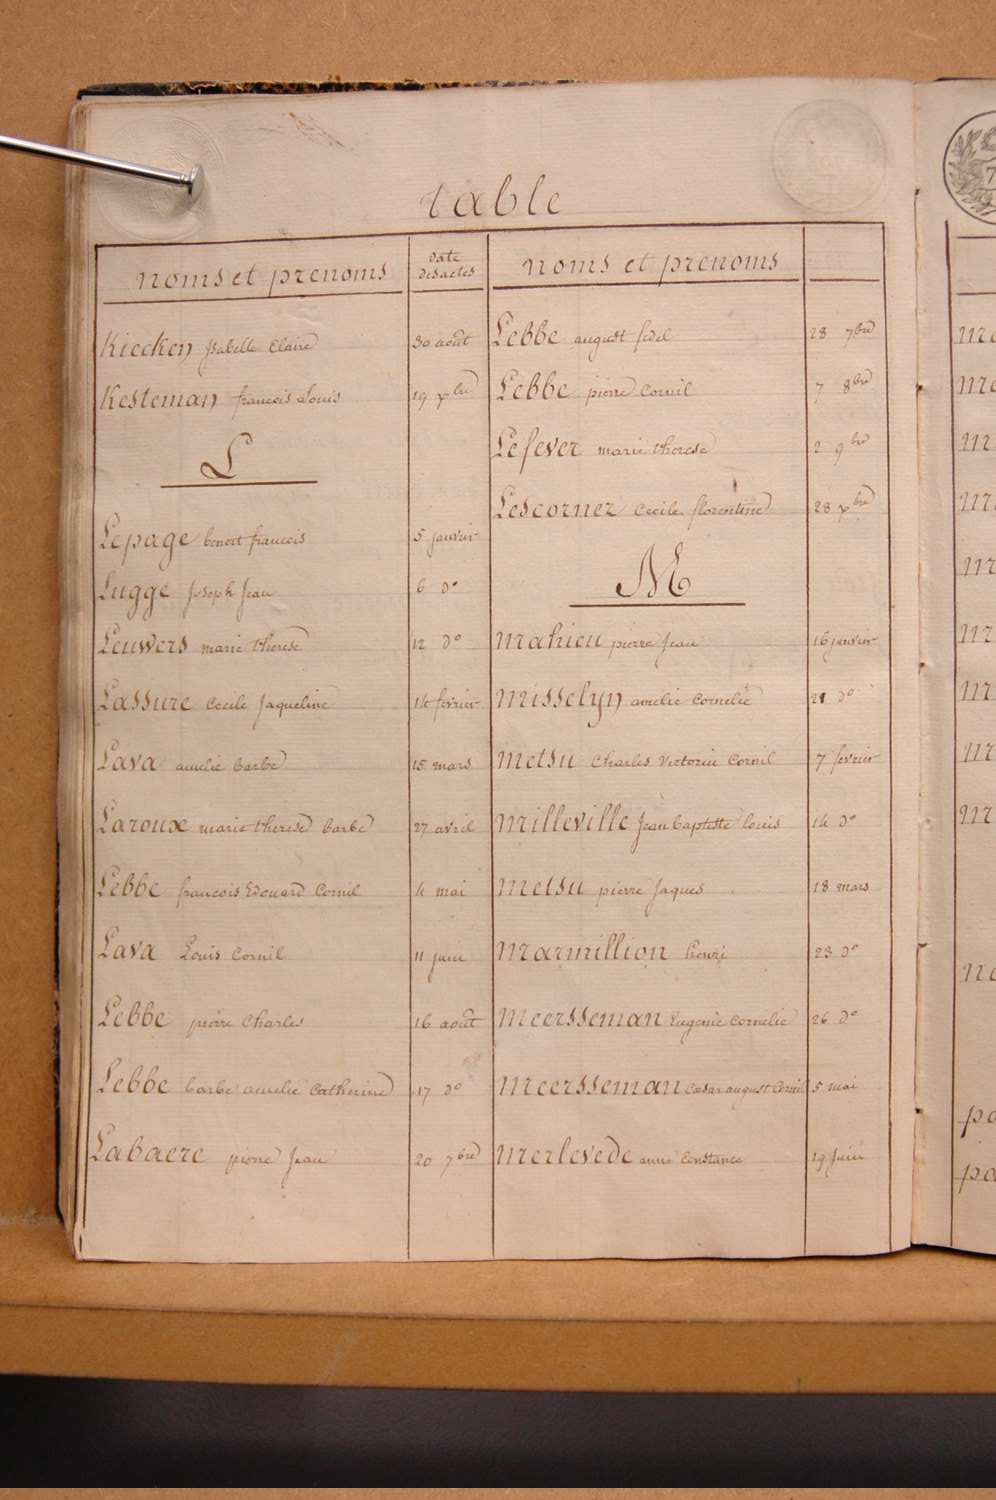 table
noms et prenoms
date
des actes
Kiecken Isabelle Claire 30 août
Kesteman francois Louis 19 xbre
L
Lepage benoit francois 5 janvier
Lugge Joseph Jean 6 do
Leuwers marie therese 12 do
Lassure Cecile Jaqueline 14 fevrier
Lava amelie barbe 15 mars
Laroux marie therese barbe 27 avril
Lebbe francois Edouard Cornil 4 mai
Lava Louis Cornil 11 juin
Lebbe pierre Charles 16 août
Lebbe barbe amelie Catherine 17 do
Labaere pierre Jean 20 7bre
noms et prenoms
Lebbe august fidel 28 7bre
Lebbe pierre Cornil 7 8bre
Lefever marie therese 2 9bre
Lescornez Cecile florentine 28 xbre
M
Mahieu pierre Jean 16 janvier
Misselyn amelie Cornelie 21 do
Metsu Charles Victorin Cornil 7 fevrier
Milleville Jean baptiste louis 14 do
Metsu pierre Jaques 18 mars
Marmillion henri 23 do
Meersseman Eugenie Cornelie 26 do
Meersseman Cesar august Cornil 5 mai
Merlevede anne Constance 19 juin